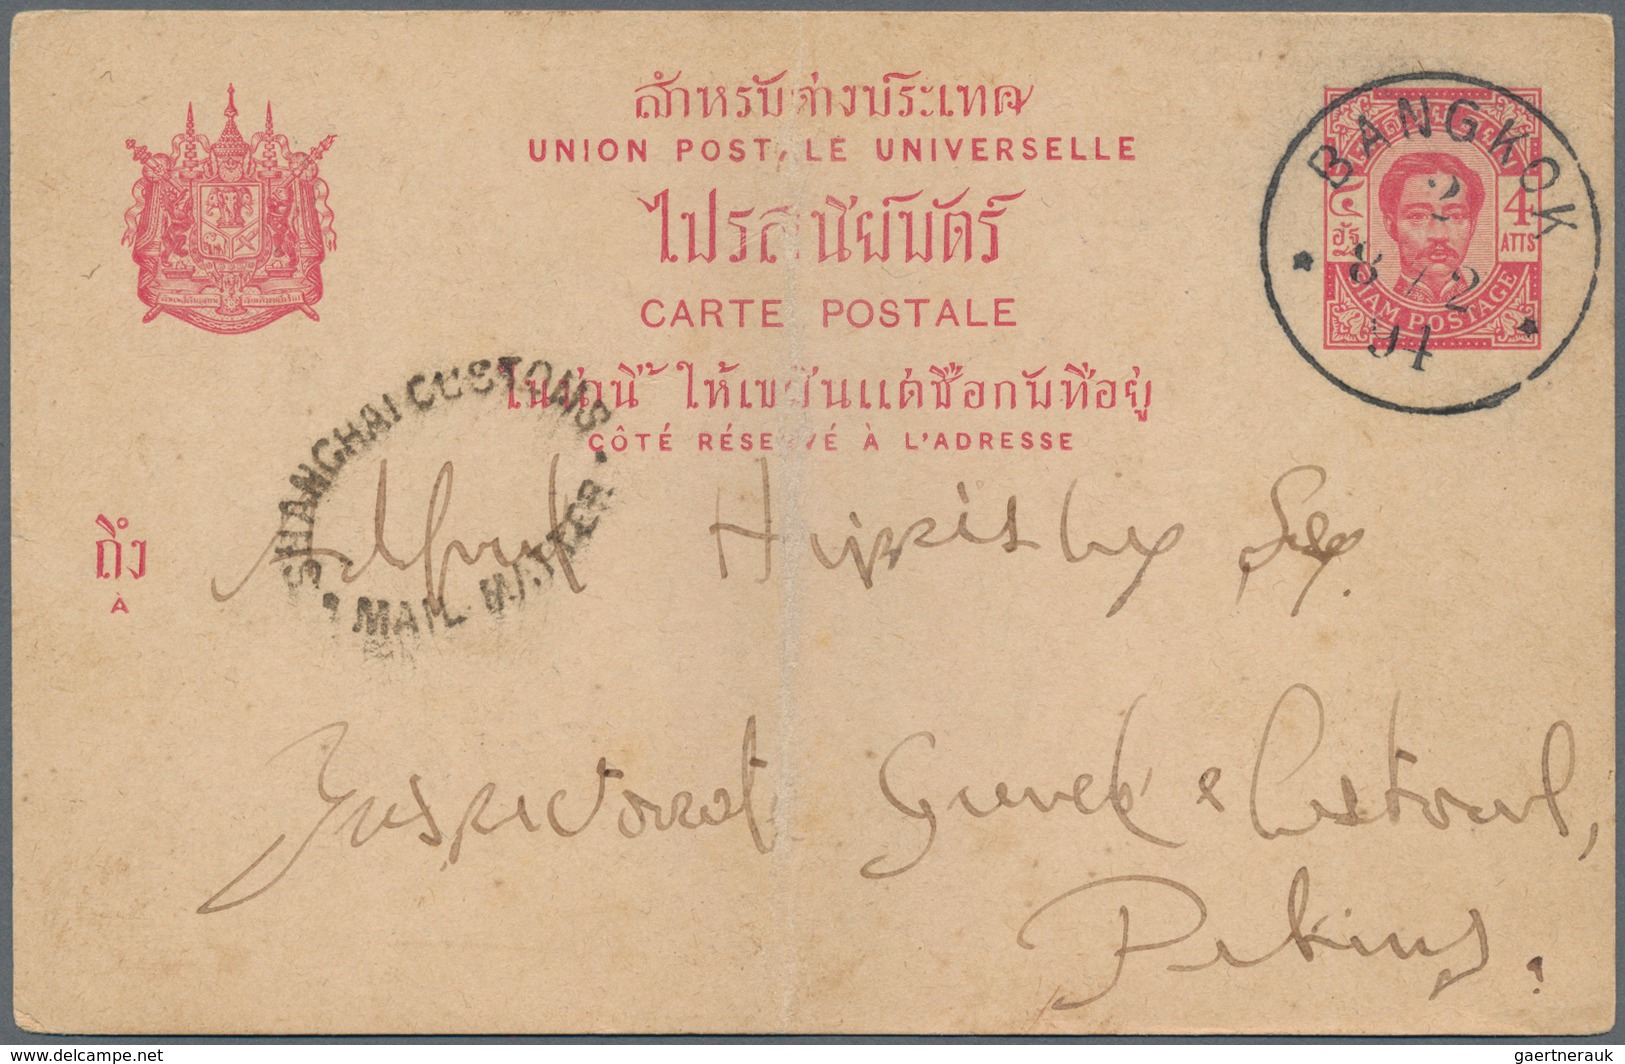 สำหรับต่างประเทศ
UNION POSTALE UNIVERSELLE
ไปรสนียับัตร์
CARTE POSTALE
ในน่านี้ ให้เขียนแต่ชื่อกับที่อยู่
CÔTÉ RÉSERVÉ À L'ADRESSE
BANGKOK
2
8 / 2
94
4
ATTS
๔
อัฐ
SIAM POSTAGE
SHANGHAI CUSTOMS
MAIL MATTER
ถึง
À
Alfred Hippisley Esq.
Inspectorate General of Customs,
Peking.
www.delcampe.net
gaertnerauk